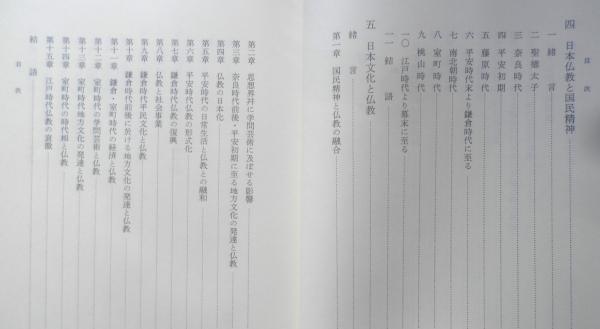 目次
四 日本仏教と国民精神
一 緒言
二 聖徳太子
三 奈良時代
四 平安初期
五 藤原時代
六 平安時代末より鎌倉時代に至る
七 南北朝時代
八 室町時代
九 桃山時代
一〇 江戸時代より幕末に至る
一一 結語
五 日本文化と仏教
緒言
第一章 国民精神と仏教の融合
第二章 思想界幷に学問芸術に及ぼせる影響
第三章 奈良時代前後・平安初期に至る地方文化の発達と仏教
第四章 仏教の日本化
第五章 平安時代の日常生活と仏教との融和
第六章 平安時代仏教の形式化
第七章 鎌倉時代仏教の復興
第八章 仏教と社会事業
第九章 鎌倉時代平民文化と仏教
第十章 鎌倉時代前後に於ける地方文化の発達と仏教
第十一章 鎌倉・室町時代の経済と仏教
第十二章 室町時代の学問芸術と仏教
第十三章 室町時代地方文化の発達と仏教
第十四章 室町時代の時代相と仏教
第十五章 江戸時代仏教の衰微
結語
目次